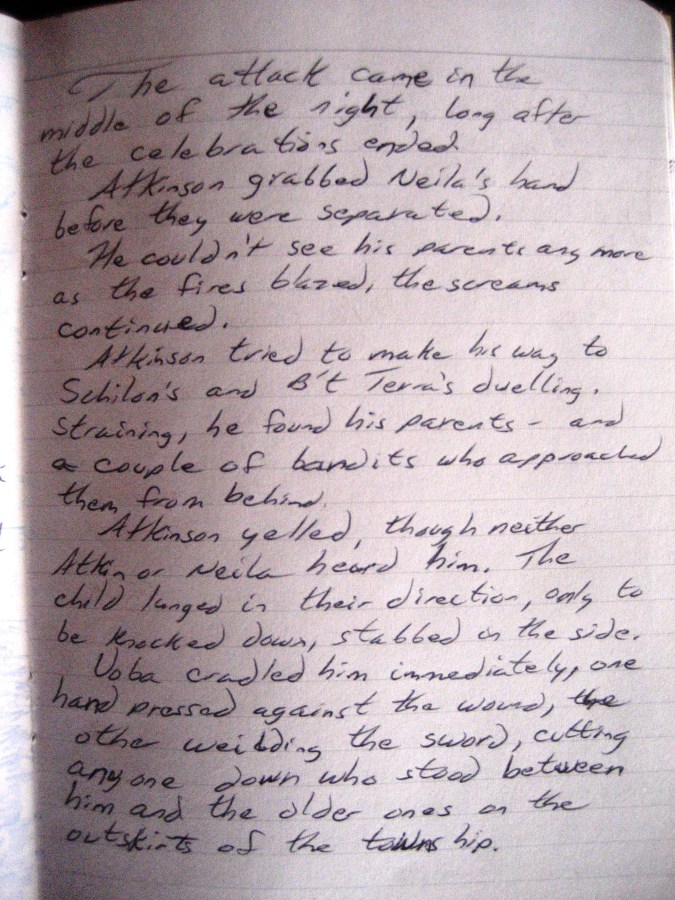 The attack came in the
middle of the night, long after
the celebrations ended.
Atkinson grabbed Neila's hand
before they were separated.
He couldn't see his parents any more
as the fires blazed, the screams
continued.
Atkinson tried to make his way to
Schilon's and B't Terra's duelling.
Straining, he found his parents - and
a couple of bandits who approached
them from behind.
Atkinson yelled, though neither
Atkin or Neila heard him. The
child lunged in their direction, only to
be knocked down, stabbed in the side.
Voba cradled him immediately, one
hand pressed against the wound, the
other weilding the sword, cutting
any one down who stood between
him and the older ones on the
outskirts of the township.